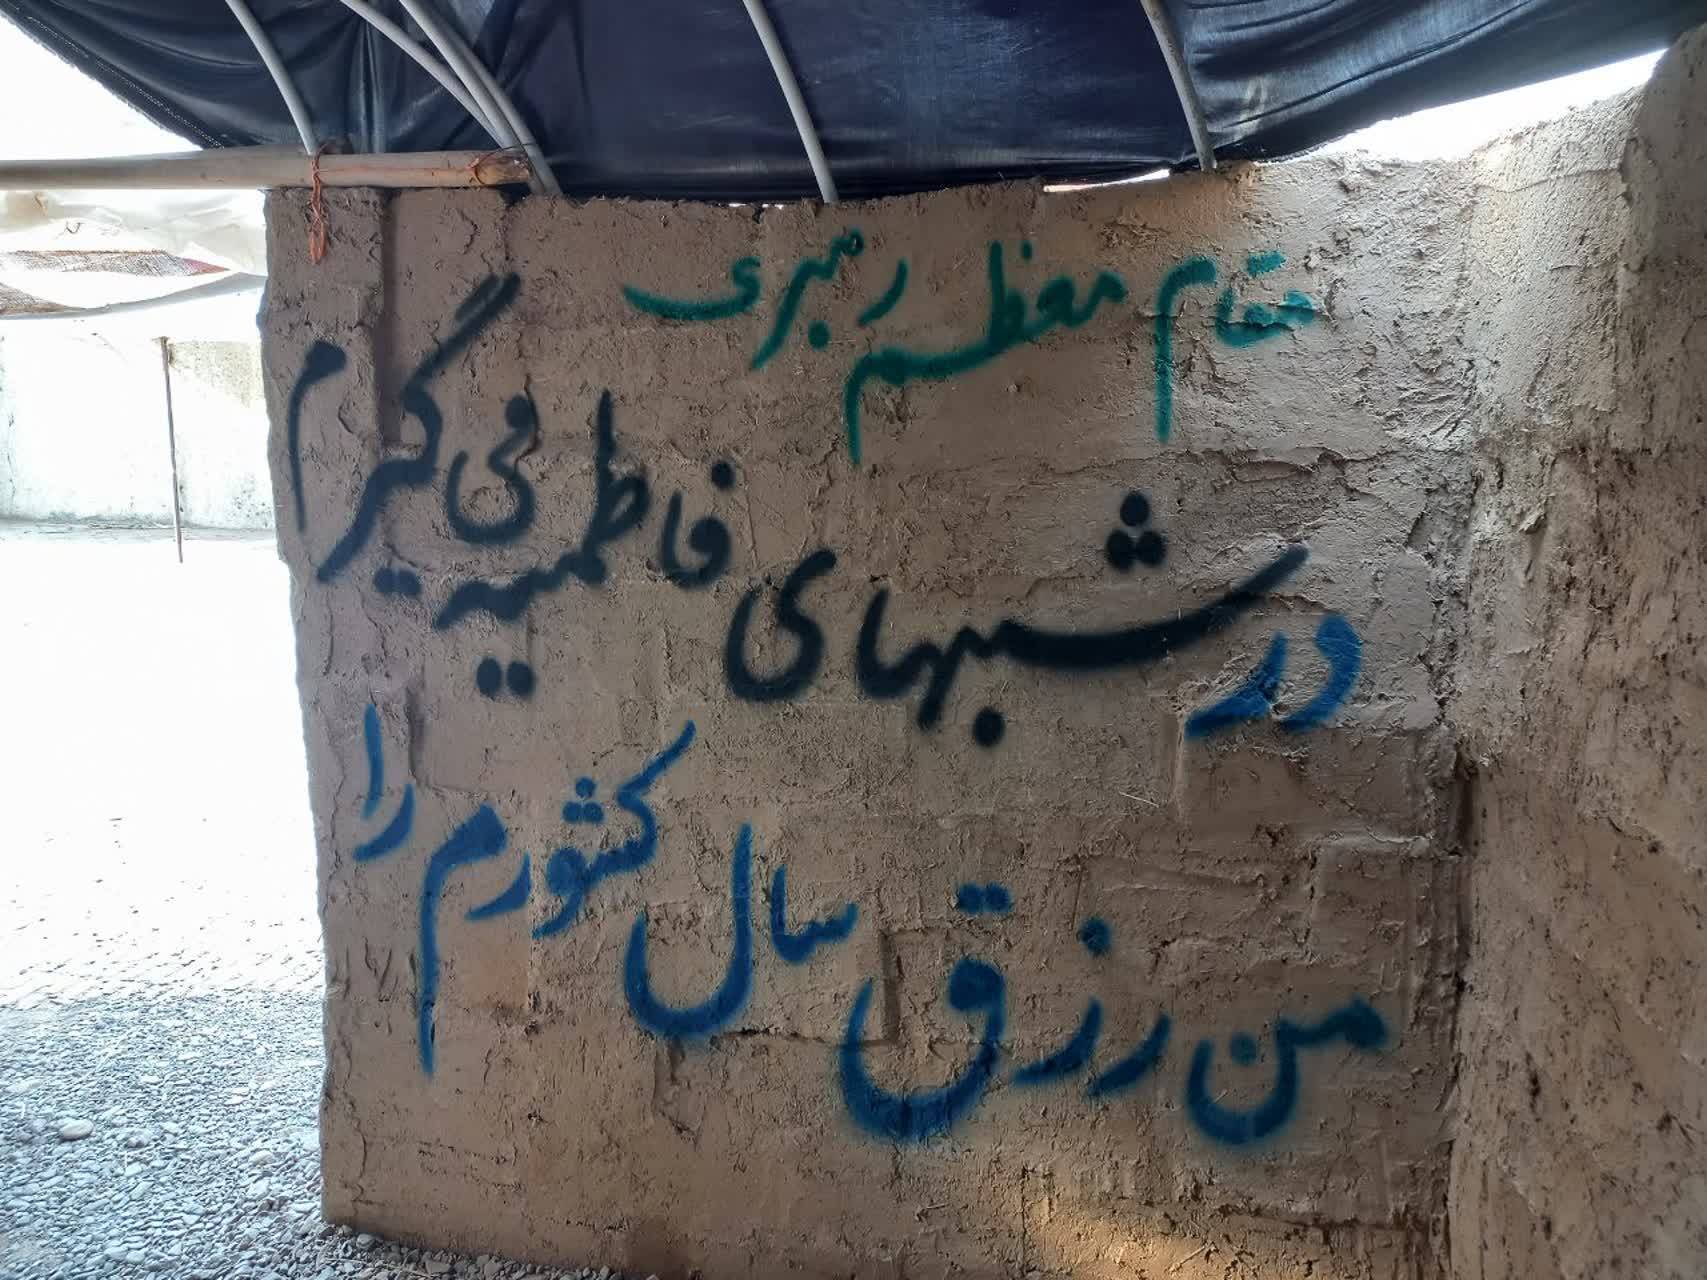 مقام معظم رهبری
من رزق سال کشورم را
در شبهای فاطمیه می گیرم